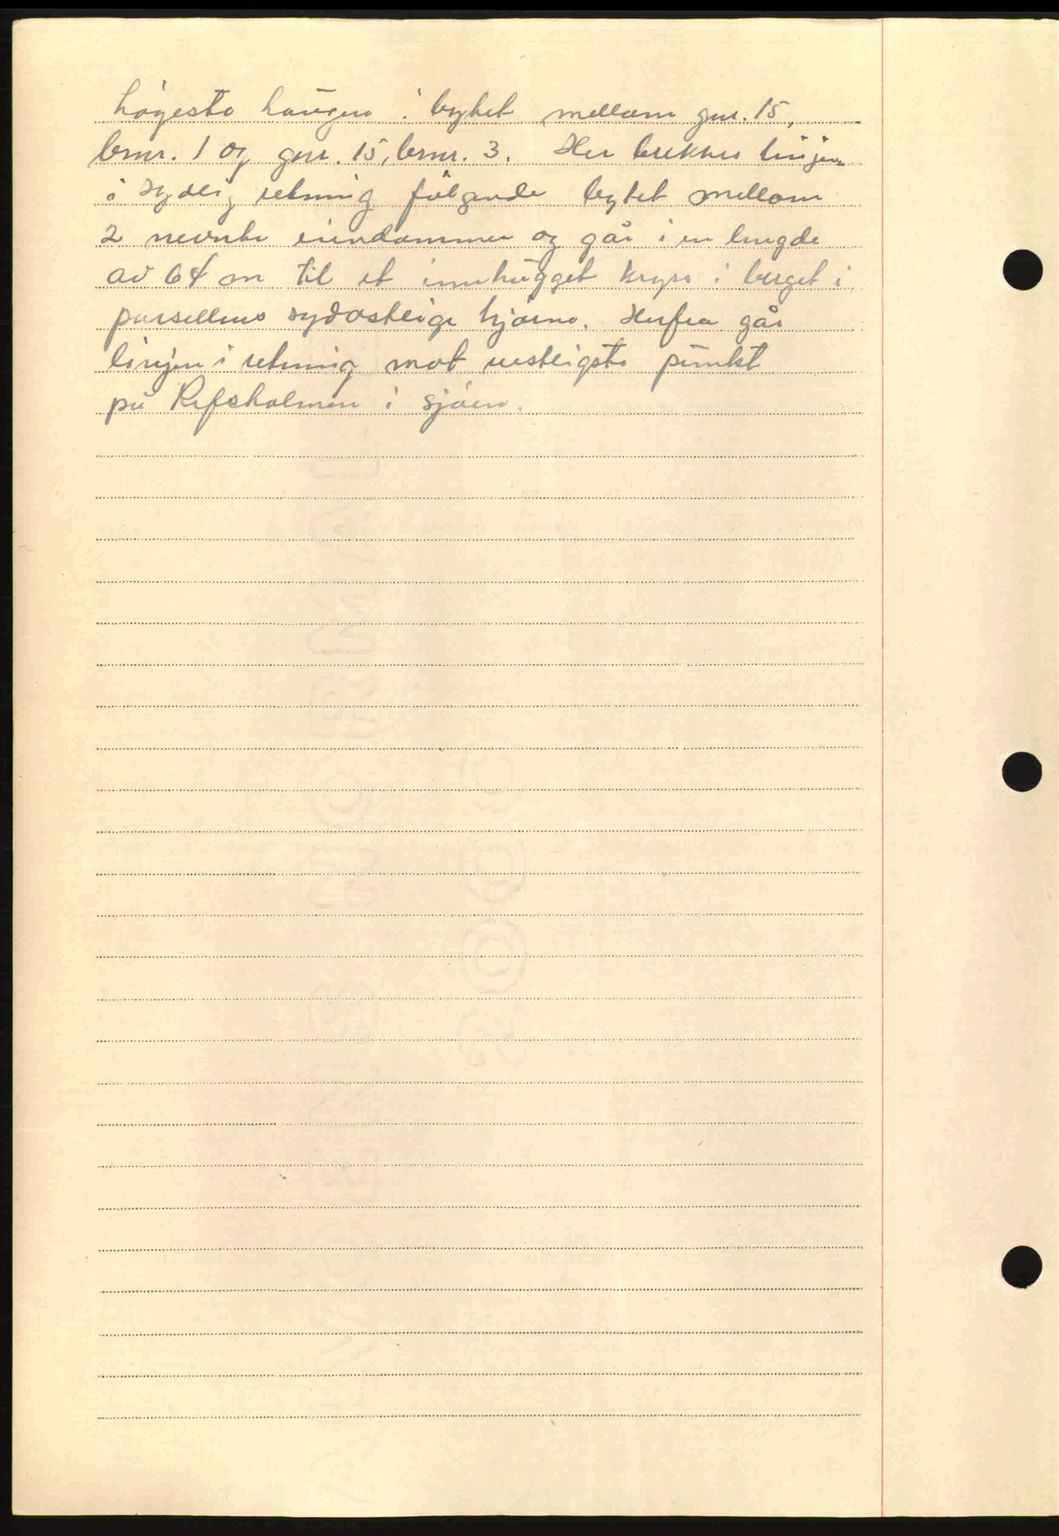 høgeste haugen i bytet mellom gnr. 15,
brnr. 1 og gnr. 15, brnr. 3. Her brekkes linjen
i sydlig retning følgende bytet mellom
2 nevnte eiendommer og går i en lengde
av 64 m til et innhugget kryss i berget i
parsellens sydøstlige hjørne. Herfra går
linjen i retning mot vestligste punkt
på Refsholmen i sjøen.